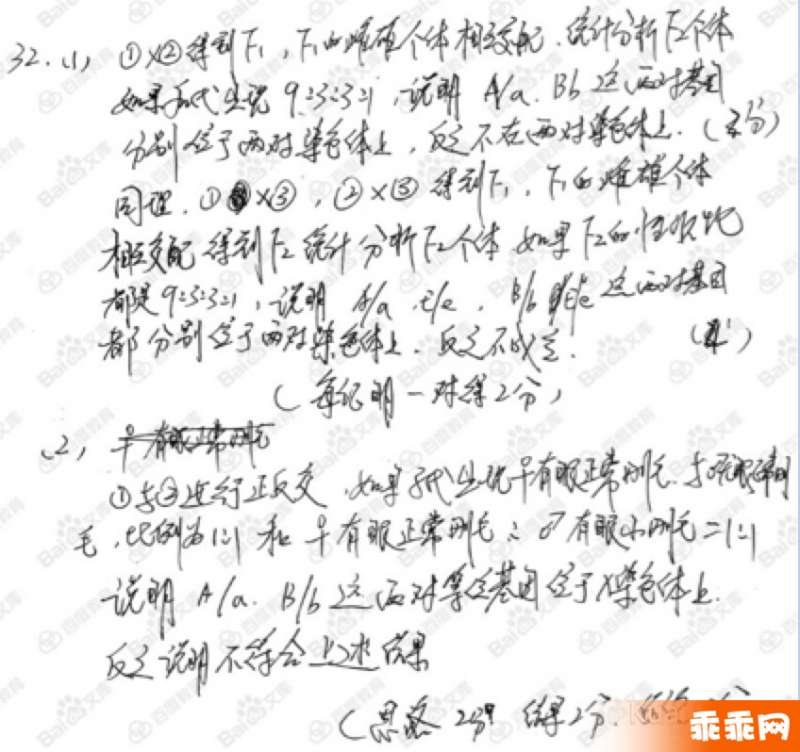 32.(1) ①×②得到F₁,F₁的雌雄个体相交配.统计分析F₂个体
如果后代出现9:3:3:1,说明 A/a、B/b 这两对基因
分别位于两对染色体上,反之不在两对染色体上.(分)
同理.①×③,②×③得到F₁,F₁的雌雄个体
相交配得到F₂统计分析F₂个体 如果F₂的性状比
都是9:3:3:1,说明 A/a E/e, B/b E/e 这两对基因
都分别位于两对染色体上.反之不成立.
(每证明一对得2分)
(2) ♀有眼正常刚毛
①与②进行正反交,如果子代出现♀有眼正常刚毛.与刚
毛,比例为1:1 和 ♀有眼正常刚毛:♂有眼小刚毛=1:1
说明 A/a、B/b 这两对等位基因位于X染色体上.
反之说明不符合上述结果
(思路2分 结果2分
乖乖网
百度教育
Baidu文库